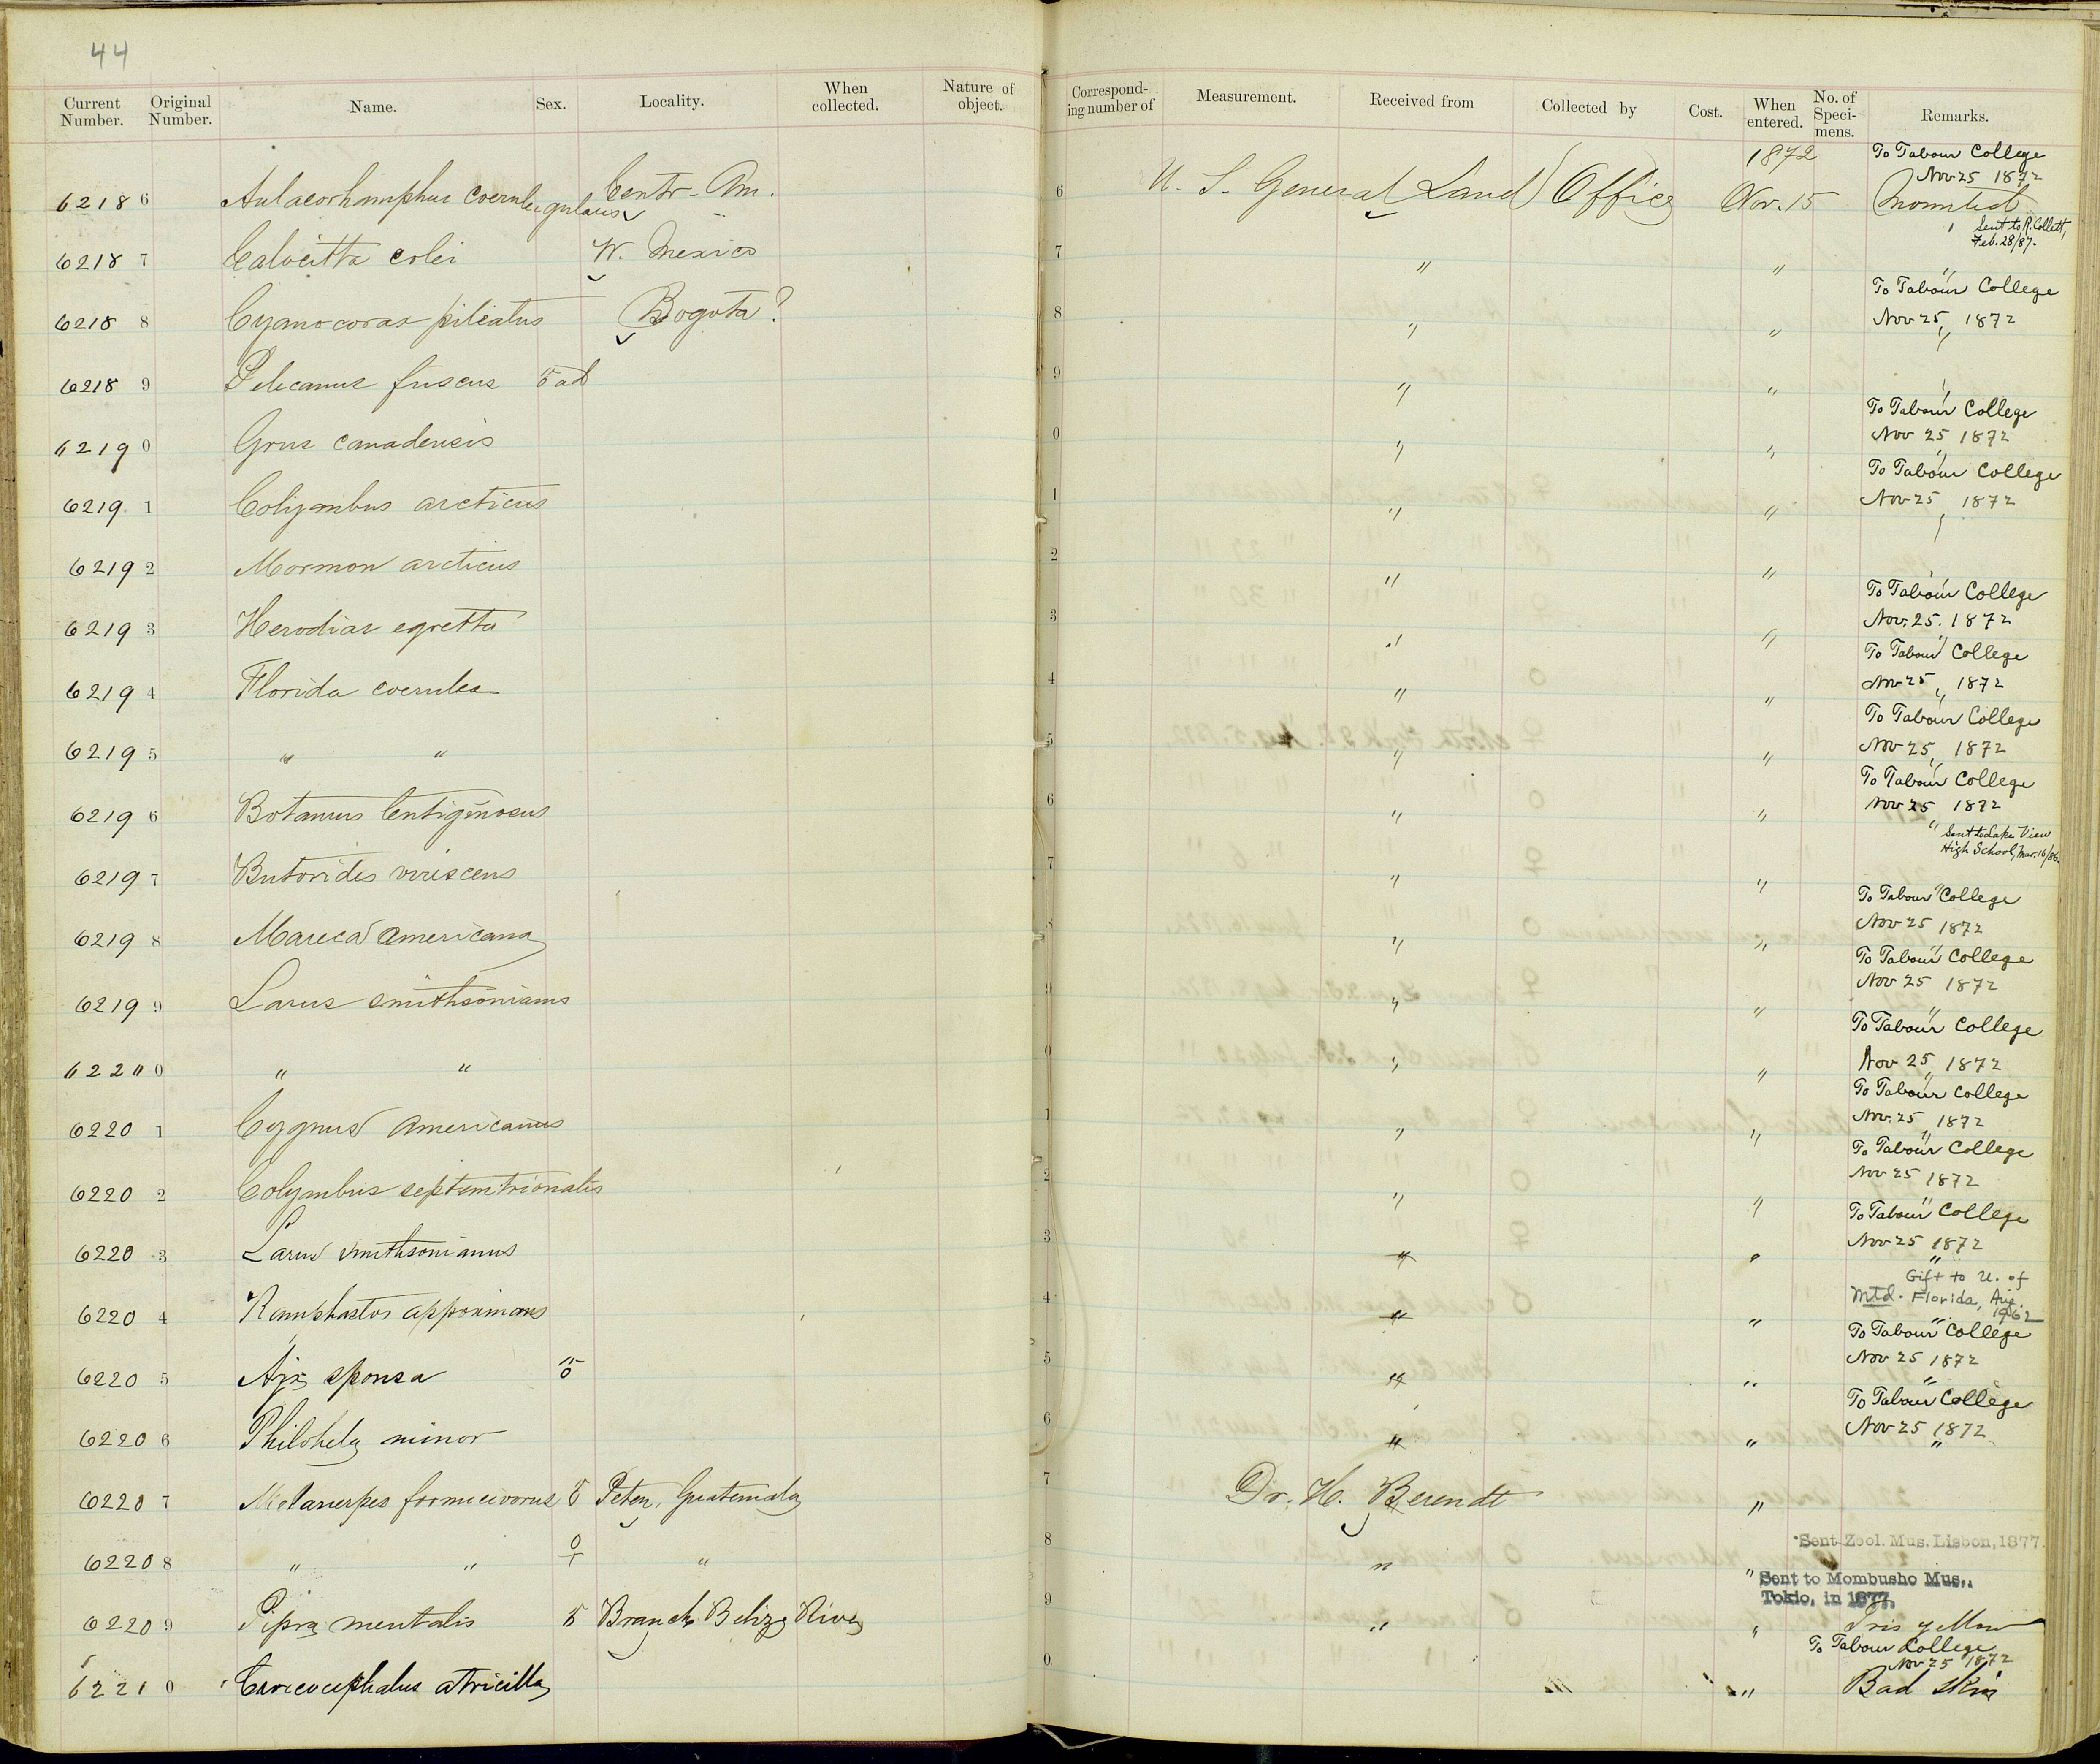 44
Current Number. Original Number. Name. Sex. Locality. When collected. Nature of object. Corresponding number of Measurement. Received from Collected by Cost. When entered. No. of Specimens. Remarks.
1872 To Tabour College
Nov 25 1872
62186 Aulacorhamphus coeruleigularis Centr. Am. 6 U. S. General Land Office Nov. 15 Mounted
Sent to R. Collett,
Feb. 28/87.
62187 Calocitta colei W. Mexico 7 " " "
To Tabour College
62188 Cyanocorax pileatus Bogota? 8 " " Nov 25, 1872 "
62189 Pelecanus fuscus ♂ ad 9 " " "
To Tabour College
62190 Grus canadensis 0 " " Nov 25 1872 "
To Tabour College
62191 Colymbus arcticus 1 " " Nov 25 1872 "
62192 Mormon arcticus 2 " " "
To Tabour College
62193 Herodias egretta 3 " " Nov. 25. 1872 "
To Tabour College
62194 Florida coerulea 4 " " Nov 25, 1872 "
To Tabour College
62195 " " 5 " " Nov 25, 1872 "
To Tabour College
62196 Botaurus lentiginosus 6 " " Nov 25 1872 "
Sent to Lake View
High School, Mar. 16/86.
62197 Butorides virescens 7 " " "
To Tabour College
62198 Mareca americana 8 " " Nov 25 1872 "
To Tabour College
62199 Larus smithsonianus 9 " " Nov 25 1872 "
To Tabour College
62200 " " 0 " " Nov 25, 1872 "
To Tabour College
62201 Cygnus americanus 1 " " Nov. 25, 1872 "
To Tabour College
62202 Colymbus septentrionalis 2 " " Nov 25 1872 "
To Tabour College
62203 Larus smithsonianus 3 " " Nov 25 1872 "
Gift to U. of
62204 Ramphastos approximans 4 " " Mtd. Florida, Aug. 1962 "
To Tabour College
62205 Aix sponsa ♂ 5 " " Nov 25 1872 "
To Tabour College
62206 Philohela minor 6 " " Nov 25 1872 "
62207 Melanerpes formicivorus ♂ Peten, Guatemala 7 Dr. H. Berendt "
Sent Zool. Mus. Lisbon, 1877.
62208 " " ♀ " 8 " "
Sent to Mombusho Mus.,
Tokio, in 1877.
62209 Pipra mentalis ♂ Branch Belize River 9 " " Iris yellow
To Tabour College
Nov 25 1872
62210 Croicocephalus atricilla 0 " " Bad skin